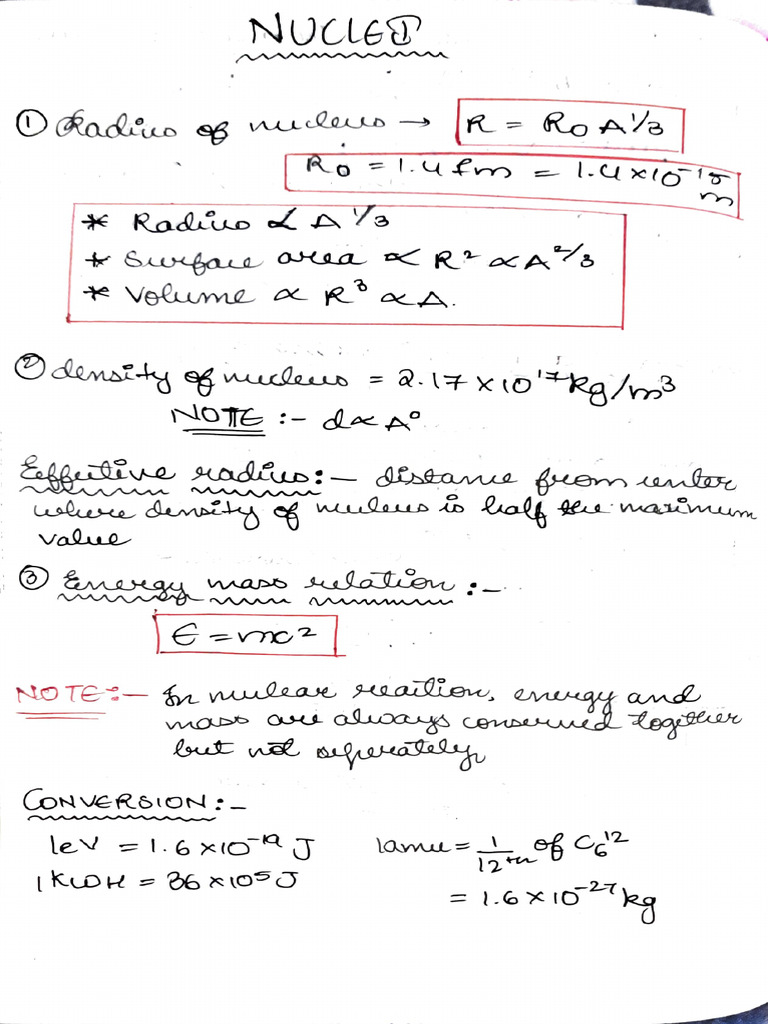 NUCLEI
① Radius of nucleus → R = R₀ A^1/3
R₀ = 1.4 fm = 1.4×10⁻¹⁵ m
* Radius ∝ A^1/3
* Surface area ∝ R² ∝ A^2/3
* Volume ∝ R³ ∝ A.
② density of nucleus = 2.17 × 10¹⁷ kg/m³
NOTE :- d ∝ A⁰
Effective radius :- distance from center
where density of nucleus is half the maximum
value
③ Energy mass relation :-
E = mc²
NOTE :- In nuclear reaction, energy and
mass are always conserved together
but not seperately
CONVERSION :-
1eV = 1.6 × 10⁻¹⁹ J
1 KWH = 36 × 10⁵ J
1amu = 1/12th of C₆¹²
= 1.6 × 10⁻²⁷ kg